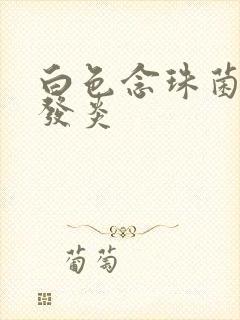 白色念珠菌
發炎
葡萄